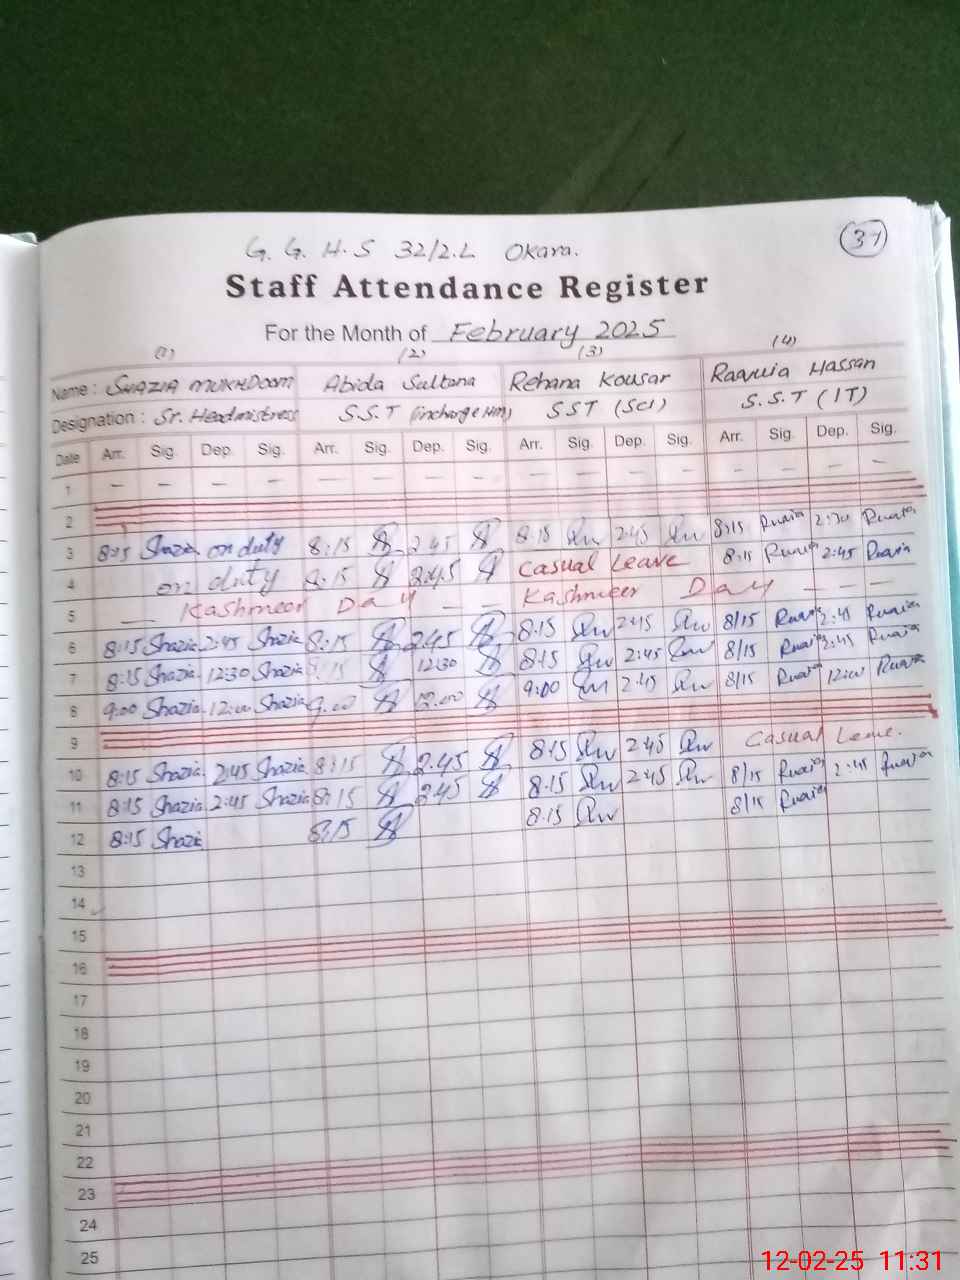 G. G. H. S 32/2.L Okara.
37
Staff Attendance Register
For the Month of February 2025
(1) (2) (3) (4)
Name: SHAZIA MUKHDOOM Abida Sultana Rehana Kousar Hassan
Designation: Sr. Headmistress S.S.T (incharge HM) SST (Sci) S.S.T (IT)
Date Arr. Sig. Dep. Sig. Arr. Sig. Dep. Sig. Arr. Sig. Dep. Sig. Arr. Sig. Dep. Sig.
1 — — — — — — — — — — — — — — — —
2
3 8:15 Shazia on duty 8:15 2.45 8.15 2:45 8/15
4 on duty 8.15 2:45 Casual Leave 8/15 2:45
5 — Kashmeer Day — — Kashmeer Day — — —
6 8:15 Shazia 2:45 Shazia 8:15 2.45 8:15 2:45 8/15 2:45
7 8:15 Shazia 12:30 Shazia 8:15 12:30 8:15 2:45 8/15 2:45
8 9:00 Shazia 12:00 Shazia 9.00 12.00 9:00 2:45 8/15 12:00
9
10 8:15 Shazia 2:45 Shazia 8:15 2.45 8:15 2:45 Casual Leave.
11 8:15 Shazia 2:45 Shazia 8:15 2.45 8.15 2:45 8/15 2:45
12 8:15 Shazia 8:15 8.15 8/15
13
14
15
16
17
18
19
20
21
22
23
24
25
12-02-25 11:31